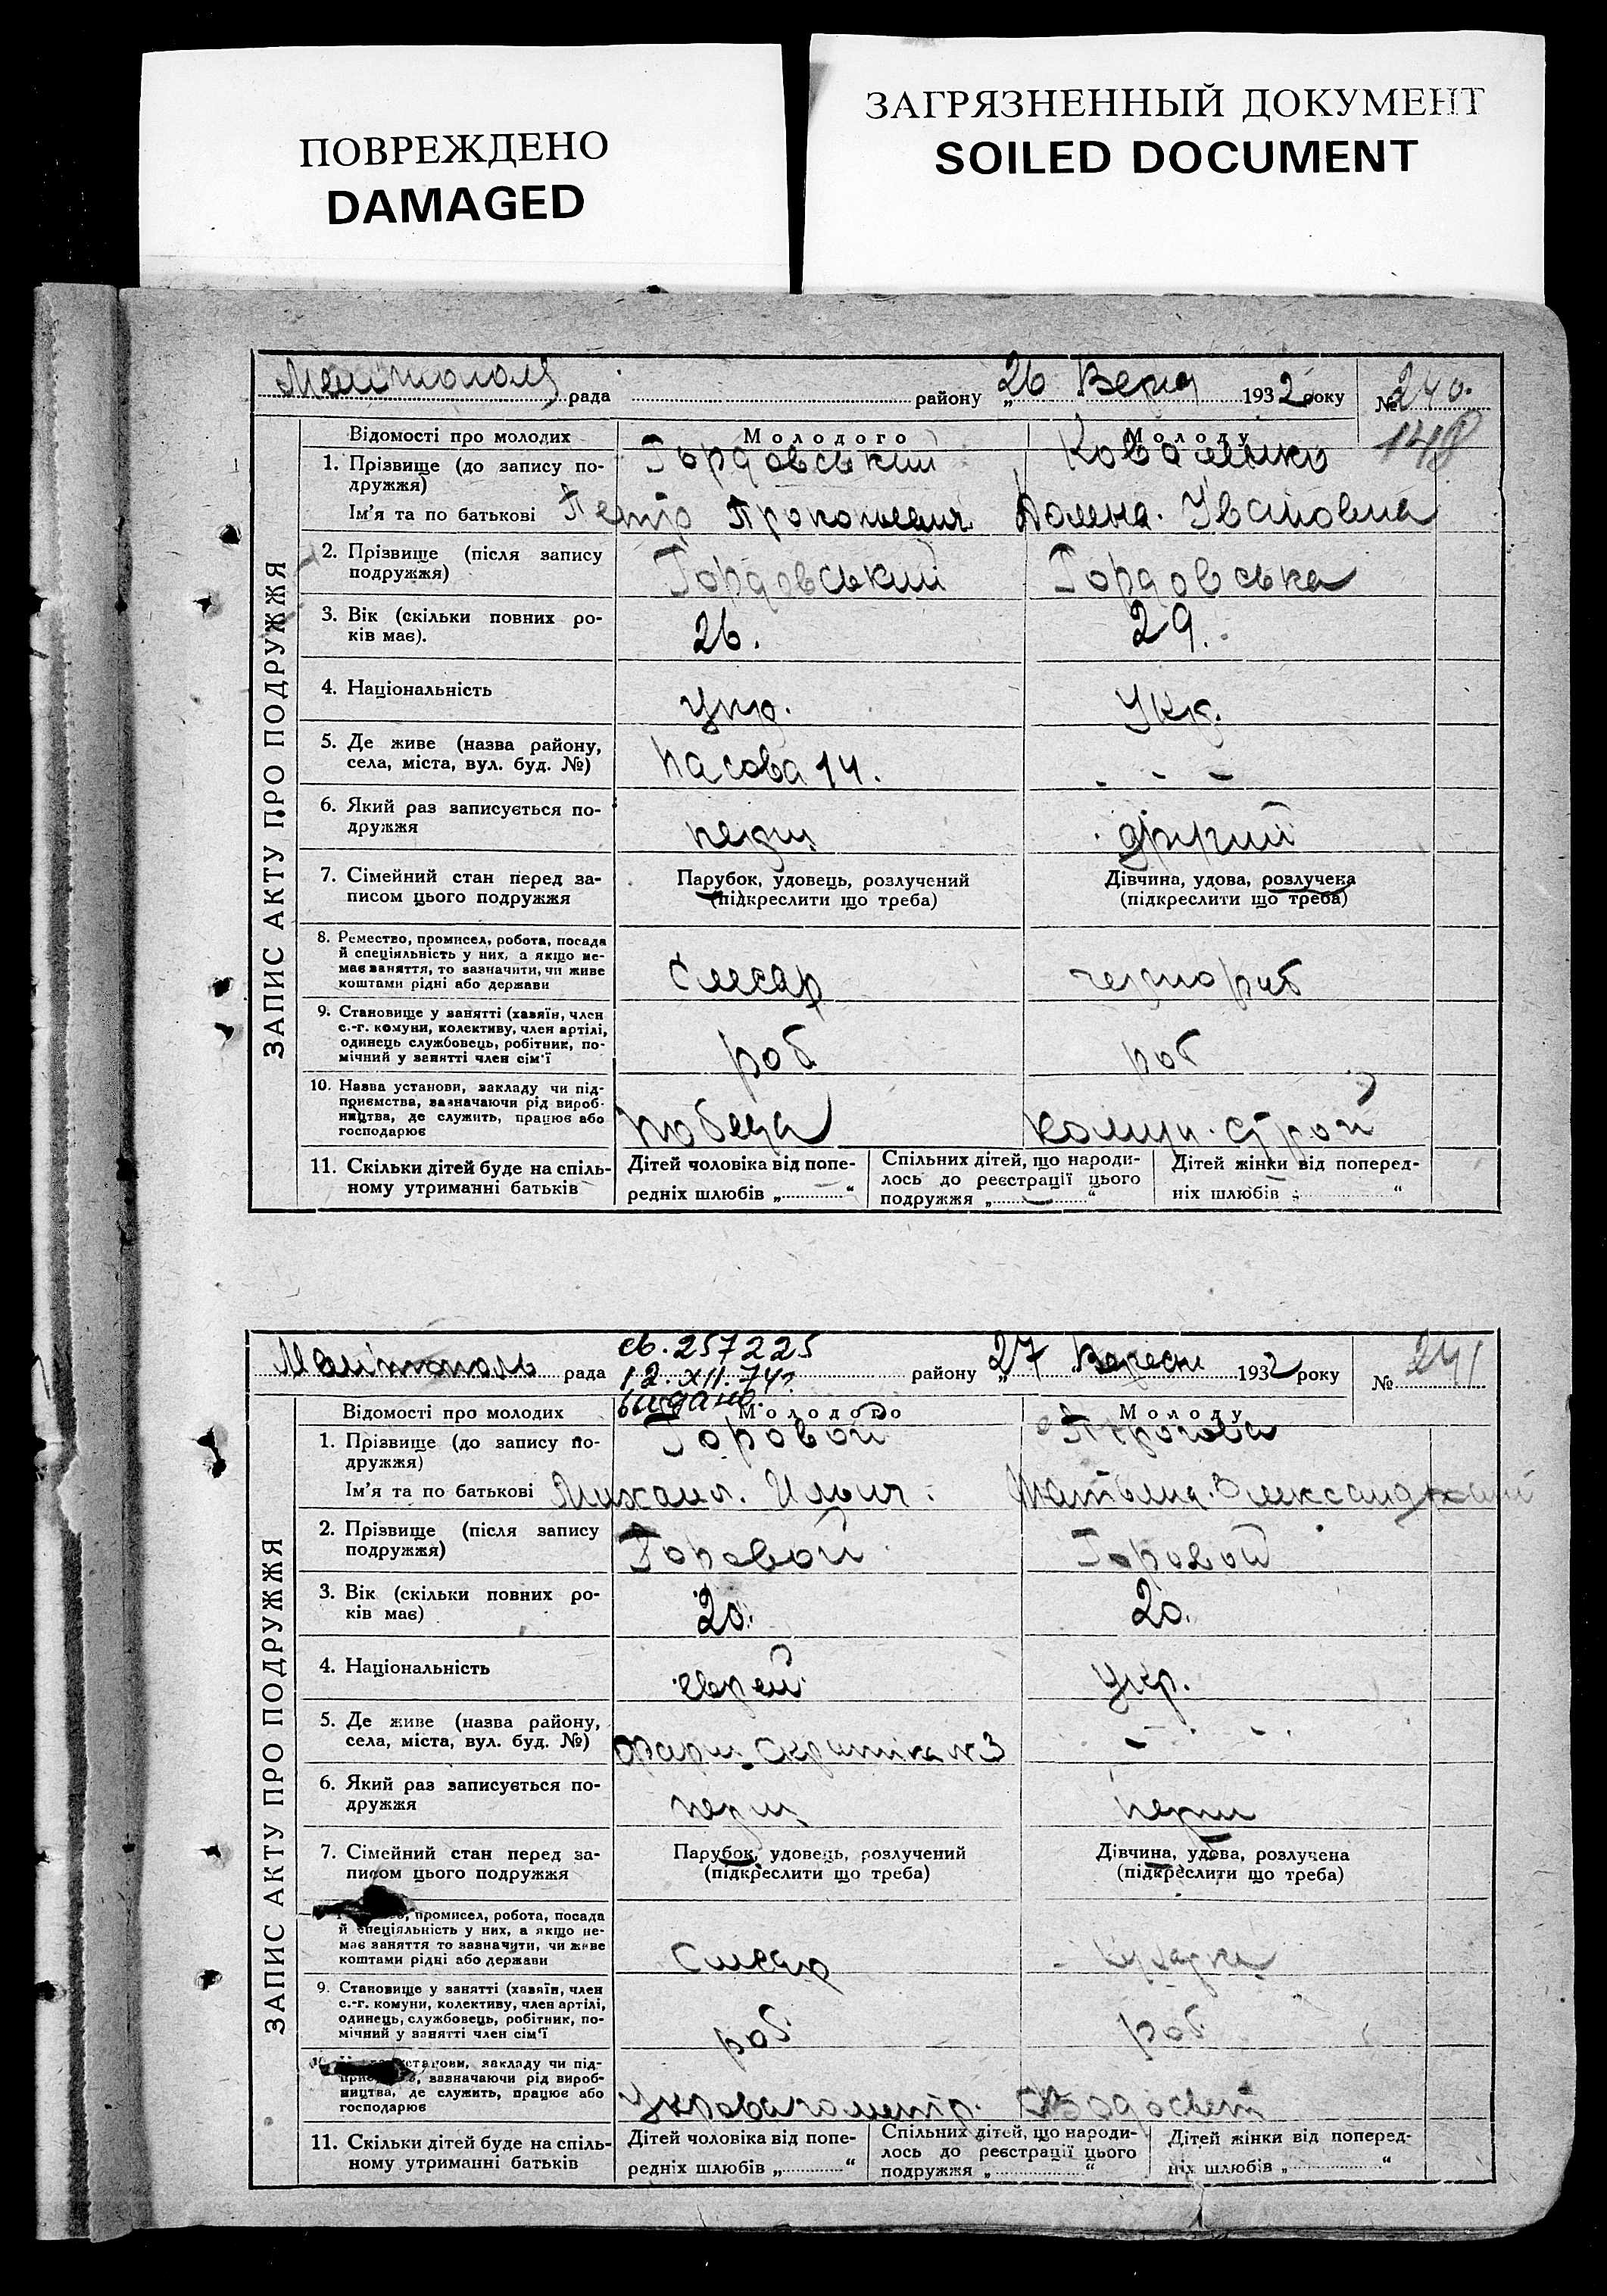 ПОВРЕЖДЕНО
DAMAGED
ЗАГРЯЗНЕННЫЙ ДОКУМЕНТ
SOILED DOCUMENT
рада району „26 1932 року № 240.
148
ЗАПИС АКТУ ПРО ПОДРУЖЖЯ
Відомості про молодих Молодого Молоду
1. Прізвище (до запису по-
дружжя) Гордовський
Ім'я та по батькові Петро Івановна
2. Прізвище (після запису
подружжя) Гордовський Гордовська
3. Вік (скільки повних ро-
ків має). 26. 29.
4. Національність укр. Укр.
5. Де живе (назва району,
села, міста, вул. буд. №) 14. - - -
6. Який раз записується по-
дружжя перш другий
7. Сімейний стан перед за-
писом цього подружжя
Парубок, удовець, розлучений
(підкреслити що треба)
Дівчина, удова, розлучена
(підкреслити що треба)
8. Ремество, промисел, робота, посада
й спеціяльність у них, а якщо не-
має заняття, то зазначити, чи живе
коштами рідні або держави
Слесар чернораб
9. Становище у занятті (хазяїн, член
с.-г. комуни, колективу, член артілі,
одинець службовець, робітник, по-
мічний у занятті член сім'ї
роб роб
10. Назва установи, закладу чи під-
приємства, зазначаючи рід вироб-
ництва, де служить, працює або
господарює
Победа
11. Скільки дітей буде на спіль-
ному утриманні батьків
Дітей чоловіка від попе-
редніх шлюбів „ “
Спільних дітей, що народи-
лось до реєстрації цього
подружжя „ — “
Дітей жінки від поперед-
ніх шлюбів „ “
св. 257225
Мелітополь рада 12.XII.74г. району „27 Вересн 1932 року № 241
выдано.
ЗАПИС АКТУ ПРО ПОДРУЖЖЯ
Відомості про молодих Молодого Молоду
1. Прізвище (до запису по-
дружжя) Горовой
Ім'я та по батькові Михаил. Ильич.
2. Прізвище (після запису
подружжя) Горовой Горовой
3. Вік (скільки повних ро-
ків має) 20. 20.
4. Національність еврей Укр.
5. Де живе (назва району,
села, міста, вул. буд. №) №3 - - -
6. Який раз записується по-
дружжя перш перш
7. Сімейний стан перед за-
писом цього подружжя
Парубок, удовець, розлучений
(підкреслити що треба)
Дівчина, удова, розлучена
(підкреслити що треба)
промисел, робота, посада
й спеціяльність у них, а якщо не-
має заняття то зазначити, чи живе
коштами рідні або держави
Слесар
9. Становище у занятті (хазяїн, член
с.-г. комуни, колективу, член артілі,
одинець, службовець, робітник, по-
мічний у занятті член сім'ї
роб роб
установи, закладу чи під-
зазначаючи рід вироб-
ництва, де служить, працює або
господарює
11. Скільки дітей буде на спіль-
ному утриманні батьків
Дітей чоловіка від попе-
редніх шлюбів „ “
Спільних дітей, що народи-
лось до реєстрації цього
подружжя „ “
Дітей жінки від поперед-
ніх шлюбів „ “